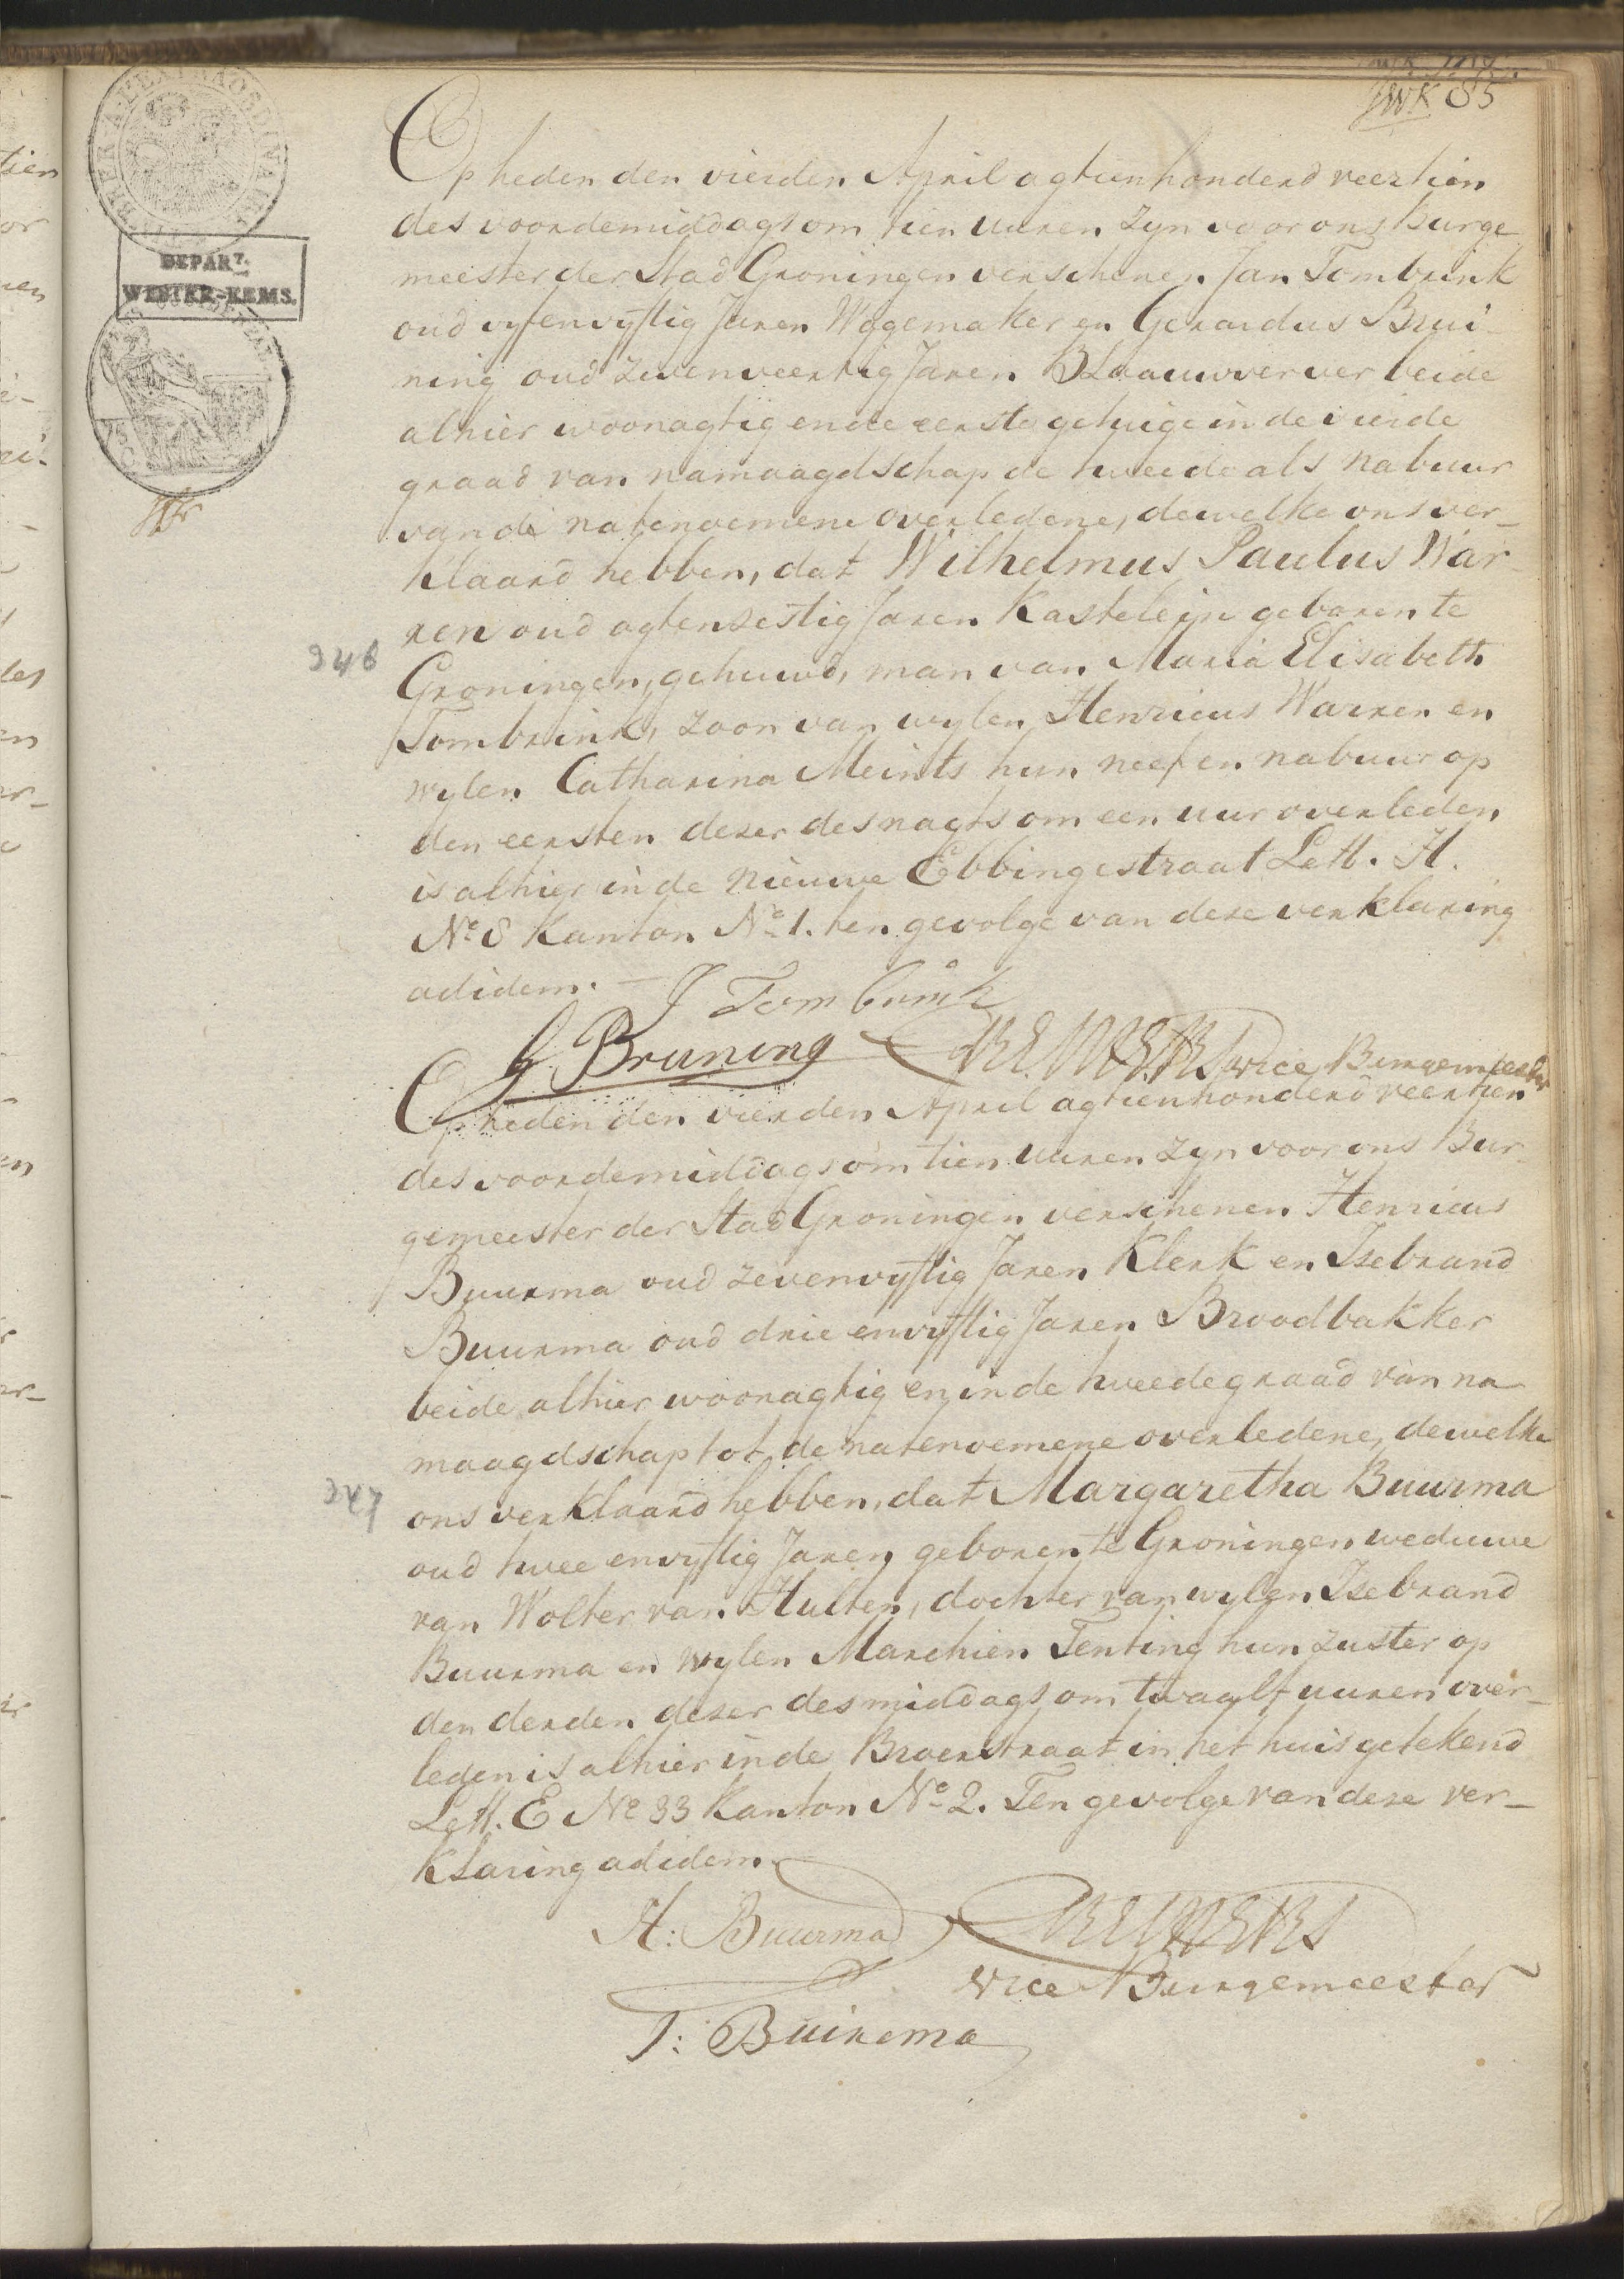 JWK 85
DEPART.
WESTER-EEMS.
Op heden den vierden April agtienhonderd veertien
des voordemiddags om tien uuren zyn voor ons burge
meester der Stad Groningen verschenen Jan Tombrink
oud vyfenvyftig Jaren Wagemaker en Gerardus Brui-
ning oud zevenveertig Jaren Blaauwverver beide
alhier woonagtig ende eerste getuige in de vierde
graad van namaagdschap de tweede als nabuur
van de natenoemene overledene, dewelke ons ver-
klaard hebben, dat Wilhelmus Paulus War-
ren oud agtensestig Jaren Kastelein geboren te
346
Groningen, gehuwd, man van Maria Elisabeth
Tombrink, zoon van wylen Henricus Warren en
wylen Catharina Meints hun neef en nabuur op
den eersten dezer des nagts om een uur overleden
is alhier in de nieuwe Ebbingestraat Lett. H.
No 8 Kanton No 1. ten gevolge van deze verklaring
adidem. —
J Tombrink
G Bruning
vice Burgemeester
Op heden den vierden April agtienhonderd veertien
des voordemiddags om tien uuren zyn voor ons Bur-
gemeester der Stad Groningen verschenen Henricus
Buurma oud zevenvyftig Jaren Klerk en Isebrand
Buurma oud drie envyftig Jaren Broodbakker
beide alhier woonagtig en in de tweede graad van na
maagdschap tot de natenoemene overledene, dewelke
347
ons verklaard hebben, dat Margaretha Buurma
oud twee envyftig Jaren geboren te Groningen weduwe
van Wolter van Hulten, dochter van wylen Isebrand
Buurma en wylen Marchien Tenting hun zuster op
den derden dezer des middags om twaalf uuren over-
leden is alhier in de Broerstraat in het huis getekend
Lett. E No 33 Kanton No 2. Ten gevolge van deze ver-
klaring adidem.
H: Buurma
vice Burgemeester
J: Buirema